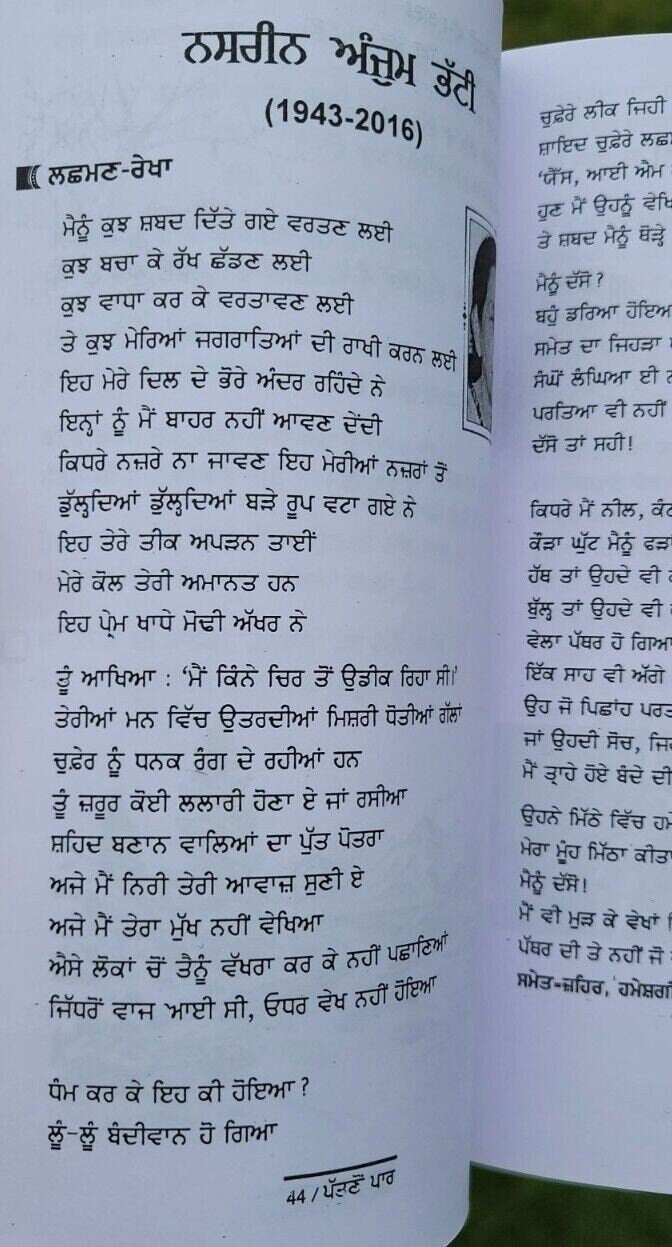 ਨਸਰੀਨ ਅੰਜੁਮ ਭੱਟੀ
(1943-2016)
ਲਛਮਣ-ਰੇਖਾ
ਮੈਨੂੰ ਕੁਝ ਸ਼ਬਦ ਦਿੱਤੇ ਗਏ ਵਰਤਣ ਲਈ
ਕੁਝ ਬਚਾ ਕੇ ਰੱਖ ਛੱਡਣ ਲਈ
ਕੁਝ ਵਾਧਾ ਕਰ ਕੇ ਵਰਤਾਵਣ ਲਈ
ਤੇ ਕੁਝ ਮੇਰਿਆਂ ਜਗਰਾਤਿਆਂ ਦੀ ਰਾਖੀ ਕਰਨ ਲਈ
ਇਹ ਮੇਰੇ ਦਿਲ ਦੇ ਭੋਰੇ ਅੰਦਰ ਰਹਿੰਦੇ ਨੇ
ਇਨ੍ਹਾਂ ਨੂੰ ਮੈਂ ਬਾਹਰ ਨਹੀਂ ਆਵਣ ਦੇਂਦੀ
ਕਿਧਰੇ ਨਜ਼ਰੇ ਨਾ ਜਾਵਣ ਇਹ ਮੇਰੀਆਂ ਨਜ਼ਰਾਂ ਤੋਂ
ਡੁੱਲ੍ਹਦਿਆਂ ਡੁੱਲ੍ਹਦਿਆਂ ਬੜੇ ਰੂਪ ਵਟਾ ਗਏ ਨੇ
ਇਹ ਤੇਰੇ ਤੀਕ ਅਪੜਨ ਤਾਈਂ
ਮੇਰੇ ਕੋਲ ਤੇਰੀ ਅਮਾਨਤ ਹਨ
ਇਹ ਪ੍ਰੇਮ ਖਾਧੇ ਮੋਢੀ ਅੱਖਰ ਨੇ
ਤੂੰ ਆਖਿਆ : 'ਮੈਂ ਕਿੰਨੇ ਚਿਰ ਤੋਂ ਉਡੀਕ ਰਿਹਾ ਸੀ।'
ਤੇਰੀਆਂ ਮਨ ਵਿੱਚ ਉਤਰਦੀਆਂ ਮਿਸ਼ਰੀ ਧੋਤੀਆਂ ਗੱਲਾਂ
ਚੁਫ਼ੇਰ ਨੂੰ ਧਨਕ ਰੰਗ ਦੇ ਰਹੀਆਂ ਹਨ
ਤੂੰ ਜ਼ਰੂਰ ਕੋਈ ਲਲਾਰੀ ਹੋਣਾ ਏ ਜਾਂ ਰਸੀਆ
ਸ਼ਹਿਦ ਬਣਾਨ ਵਾਲਿਆਂ ਦਾ ਪੁੱਤ ਪੋਤਰਾ
ਅਜੇ ਮੈਂ ਨਿਰੀ ਤੇਰੀ ਆਵਾਜ਼ ਸੁਣੀ ਏ
ਅਜੇ ਮੈਂ ਤੇਰਾ ਮੁੱਖ ਨਹੀਂ ਵੇਖਿਆ
ਐਸੇ ਲੋਕਾਂ ਚੋਂ ਤੈਨੂੰ ਵੱਖਰਾ ਕਰ ਕੇ ਨਹੀਂ ਪਛਾਣਿਆਂ
ਜਿੱਧਰੋਂ ਵਾਜ ਆਈ ਸੀ, ਓਧਰ ਵੇਖ ਨਹੀਂ ਹੋਇਆ
ਧੰਮ ਕਰ ਕੇ ਇਹ ਕੀ ਹੋਇਆ ?
ਲੂੰ-ਲੂੰ ਬੰਦੀਵਾਨ ਹੋ ਗਿਆ
44 / ਪੱਤਣੋਂ ਪਾਰ
ਚੁਫ਼ੇਰੇ ਲੀਕ ਜਿਹੀ
ਸ਼ਾਇਦ ਚੁਫ਼ੇਰੇ
'ਯੈੱਸ, ਆਈ ਐਮ
ਹੁਣ ਮੈਂ ਉਹਨੂੰ
ਤੇ ਸ਼ਬਦ ਮੈਨੂੰ ਥੋੜ੍ਹੇ
ਮੈਨੂੰ ਦੱਸੋ ?
ਬਹੁੰ ਡਰਿਆ
ਸਮੇਤ ਦਾ ਜਿਹੜਾ
ਸੰਘੋਂ ਲੰਘਿਆ ਈ
ਪਰਤਿਆ ਵੀ ਨਹੀਂ
ਦੱਸੋ ਤਾਂ ਸਹੀ!
ਕਿਧਰੇ ਮੈਂ ਨੀਲ,
ਕੌੜਾ ਘੁੱਟ ਮੈਨੂੰ
ਹੱਥ ਤਾਂ ਉਹਦੇ ਵੀ
ਬੁੱਲ੍ਹ ਤਾਂ ਉਹਦੇ ਵੀ
ਵੇਲਾ ਪੱਥਰ ਹੋ ਗਿਆ
ਇੱਕ ਸਾਹ ਵੀ ਅੱਗੇ
ਉਹ ਜੋ ਪਿਛਾਂਹ
ਜਾਂ ਉਹਦੀ ਸੋਚ,
ਮੈਂ ਤ੍ਰਾਹੇ ਹੋਏ ਬੰਦੇ ਦੀ
ਉਹਨੇ ਮਿੱਠੇ ਵਿੱਚ
ਮੇਰਾ ਮੂੰਹ ਮਿੱਠਾ ਕੀਤਾ
ਮੈਨੂੰ ਦੱਸੋ!
ਮੈਂ ਵੀ ਮੁੜ ਕੇ ਵੇਖਾਂ
ਪੱਥਰ ਦੀ ਤੇ ਨਹੀਂ ਜੋ
ਸਮੇਤ-ਜ਼ਹਿਰ,